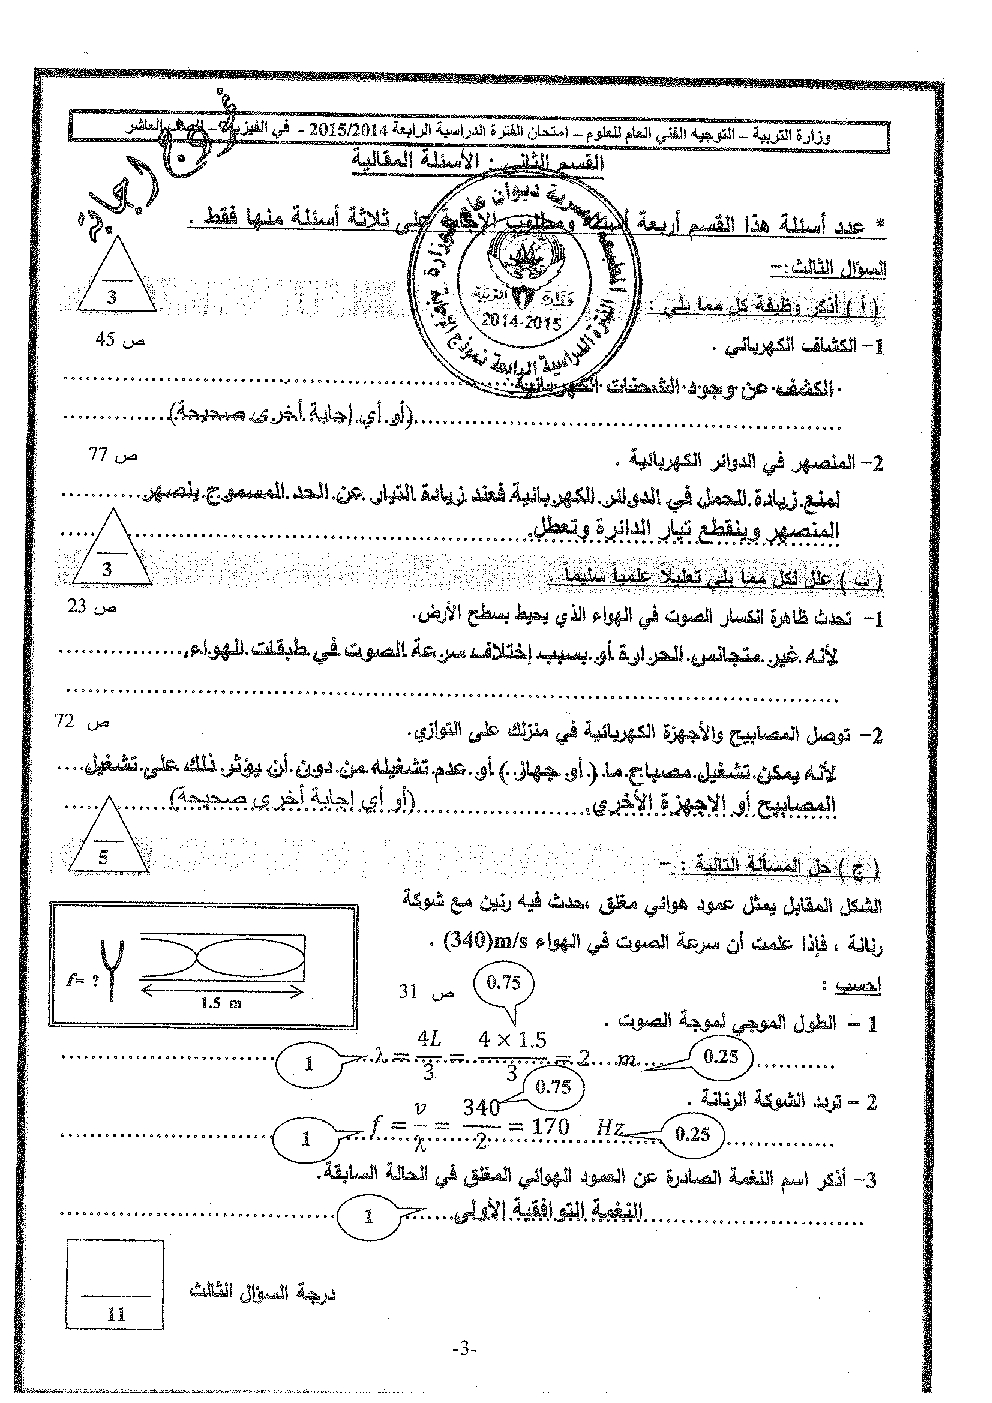 نموذج الإجابة
وزارة التربية – التوجيه الفني العام للعلوم – امتحان الفترة الدراسية الرابعة 2015/2014 - في الفيزياء – الصف العاشر
القسم الثاني : الأسئلة المقالية
* عدد أسئلة هذا القسم أربعة أسئلة ومطلوب الإجابة على ثلاثة أسئلة منها فقط .
السؤال الثالث:-
( أ ) أذكر وظيفة كل مما يلي :
3
وزارة التربية
2014-2015
1- الكشاف الكهربائي .
ص 45
الكشف عن وجود الشحنات الكهربائية
(أو أي إجابة أخرى صحيحة)
2- المنصهر في الدوائر الكهربائية .
ص 77
لمنع زيادة الحمل في الدوائر الكهربائية فعند زيادة التيار عن الحد المسموح ينصهر
المنصهر وينقطع تيار الدائرة وتعطل.
3
( ب ) علل لكل مما يلي تعليلا علميا سليما .
1- تحدث ظاهرة انكسار الصوت في الهواء الذي يحيط بسطح الأرض.
ص 23
لأنه غير متجانس الحرارة أو بسبب إختلاف سرعة الصوت في طبقات الهواء.
2- توصل المصابيح والأجهزة الكهربائية في منزلك على التوازي.
ص 72
لأنه يمكن تشغيل مصباح ما ( أو جهاز ) أو عدم تشغيله من دون أن يؤثر ذلك على تشغيل
المصابيح أو الاجهزة الأخرى.
(أو أي إجابة أخرى صحيحة)
5
( ج ) حل المسألة التالية : -
الشكل المقابل يمثل عمود هوائي مغلق ،حدث فيه رنين مع شوكة
رنانة ، فإذا علمت أن سرعة الصوت في الهواء m/s(340) .
f= ?
1.5 m
احسب :
ص 31
0.75
1 – الطول الموجي لموجة الصوت .
1 λ = 4L/3 = 4 × 1.5/3 = 2 m 0.25
0.75
2 – تردد الشوكة الرنانة .
1 f = v/λ = 340/2 = 170 Hz 0.25
3- أذكر اسم النغمة الصادرة عن العمود الهوائي المغلق في الحالة السابقة.
النغمة التوافقية الأولى 1
درجة السؤال الثالث
11
-3-